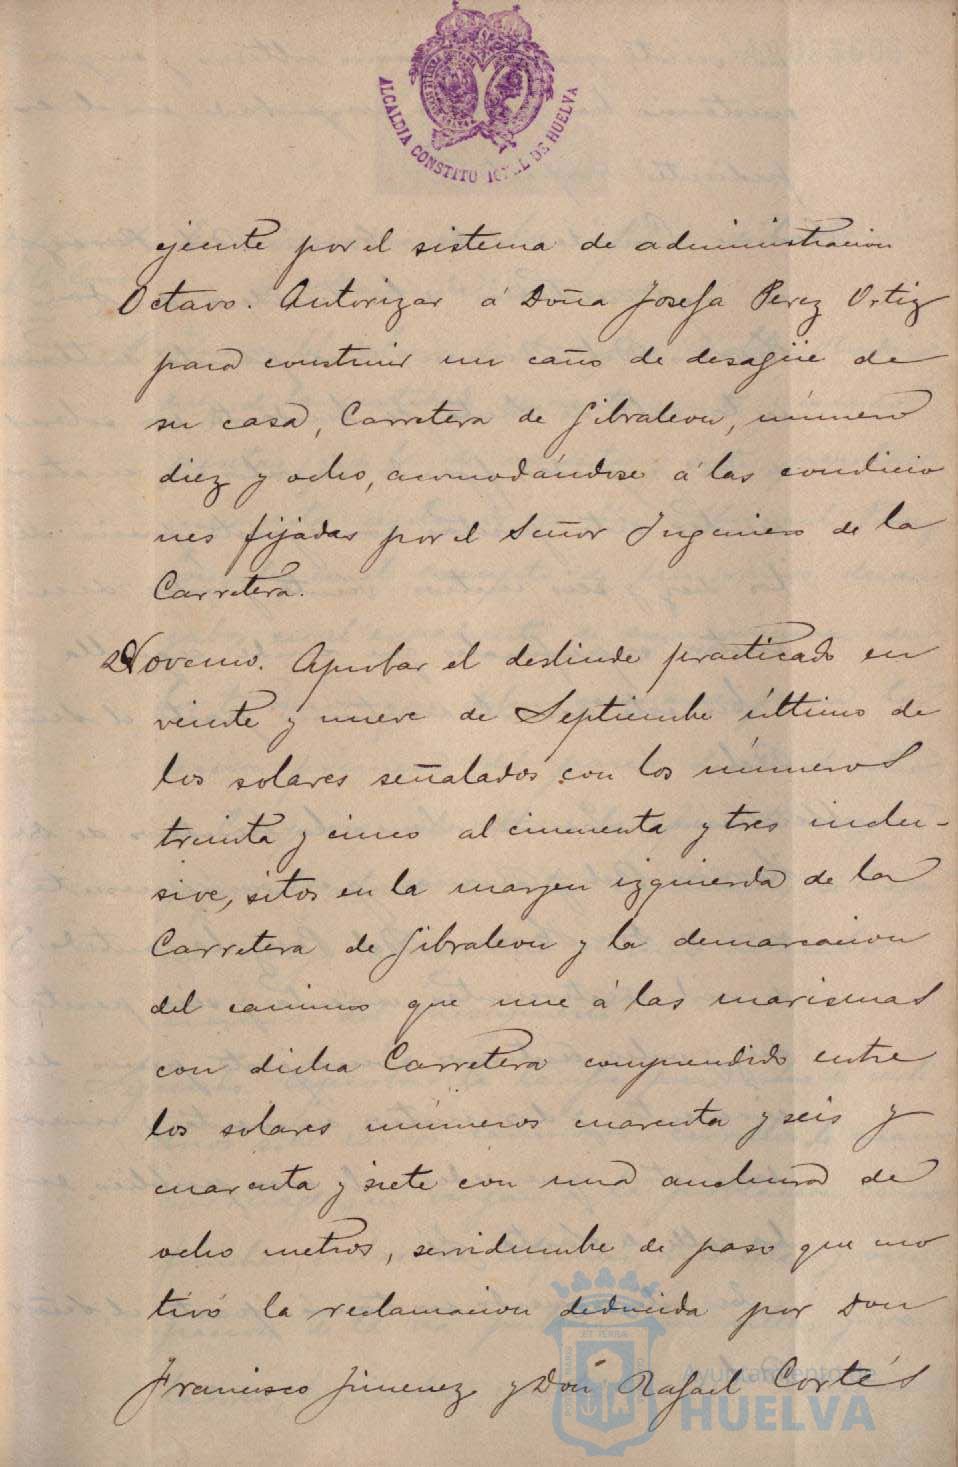 ALCALDIA CONSTITUCIONAL DE HUELVA
ejecute por el sistema de administracion
Octavo. Autorizar á Doña Josefa Perez Ortiz
para construir un caño de desagüe de
su casa, Carretera de Gibraleon, número
diez y ocho, acomodándose á las condicio
nes fijadas por el Señor Ingeniero de la
Carretera.
Noveno. Aprobar el deslinde practicado en
veinte y nueve de Septiembre último de
los solares señalados con los números
treinta y cinco al cincuenta y tres inclu-
sive, sitos en la margen izquierda de la
Carretera de Gibraleon y la demarcacion
del camino que une á las marismas
con dicha Carretera comprendido entre
los solares números cuarenta y seis y
cuarenta y siete con una anchura de
ocho metros, servidumbre de paso que mo
tivó la reclamacion deducida por Don
Francisco Jimenez y Don Rafael Cortés
Ayuntamiento de
HUELVA